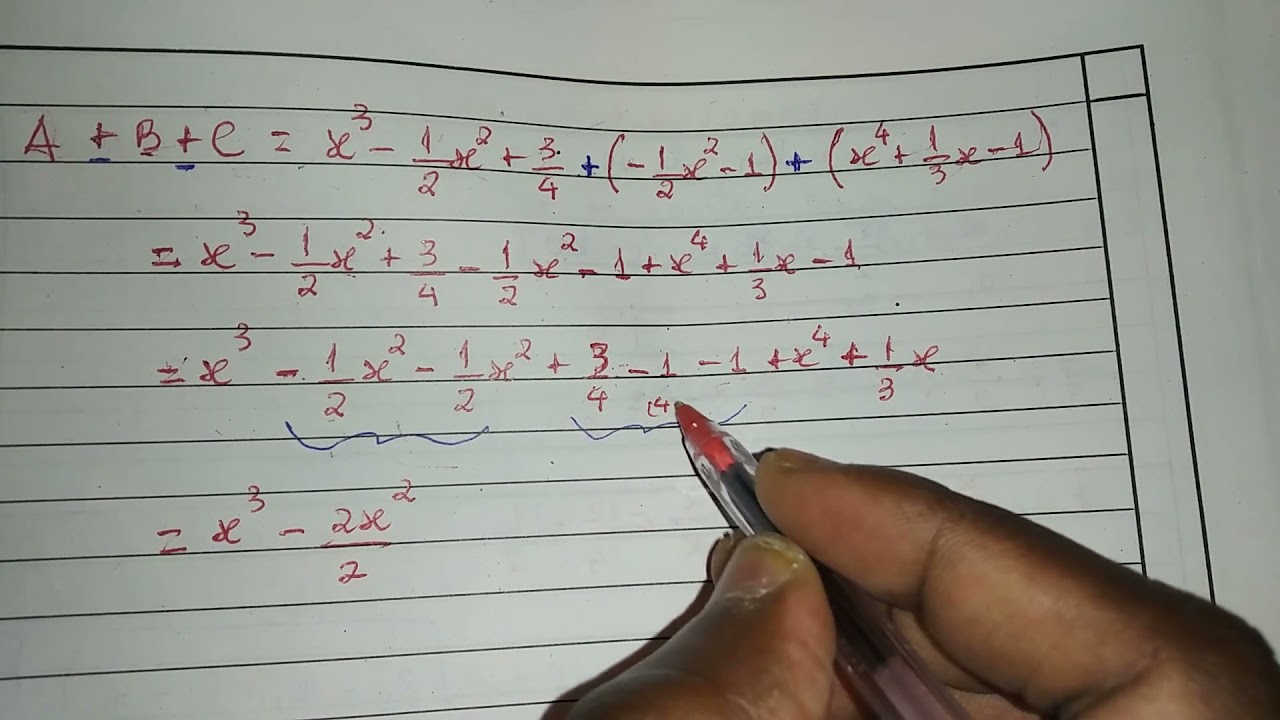 A + B + C = x³ - 1/2 x² + 3/4 + (-1/2 x² - 1) + (x⁴ + 1/3 x - 1)
= x³ - 1/2 x² + 3/4 - 1/2 x² - 1 + x⁴ + 1/3 x - 1
= x³ - 1/2 x² - 1/2 x² + 3/4 - 1 - 1 + x⁴ + 1/3 x
(4
= x³ - 2x²/2